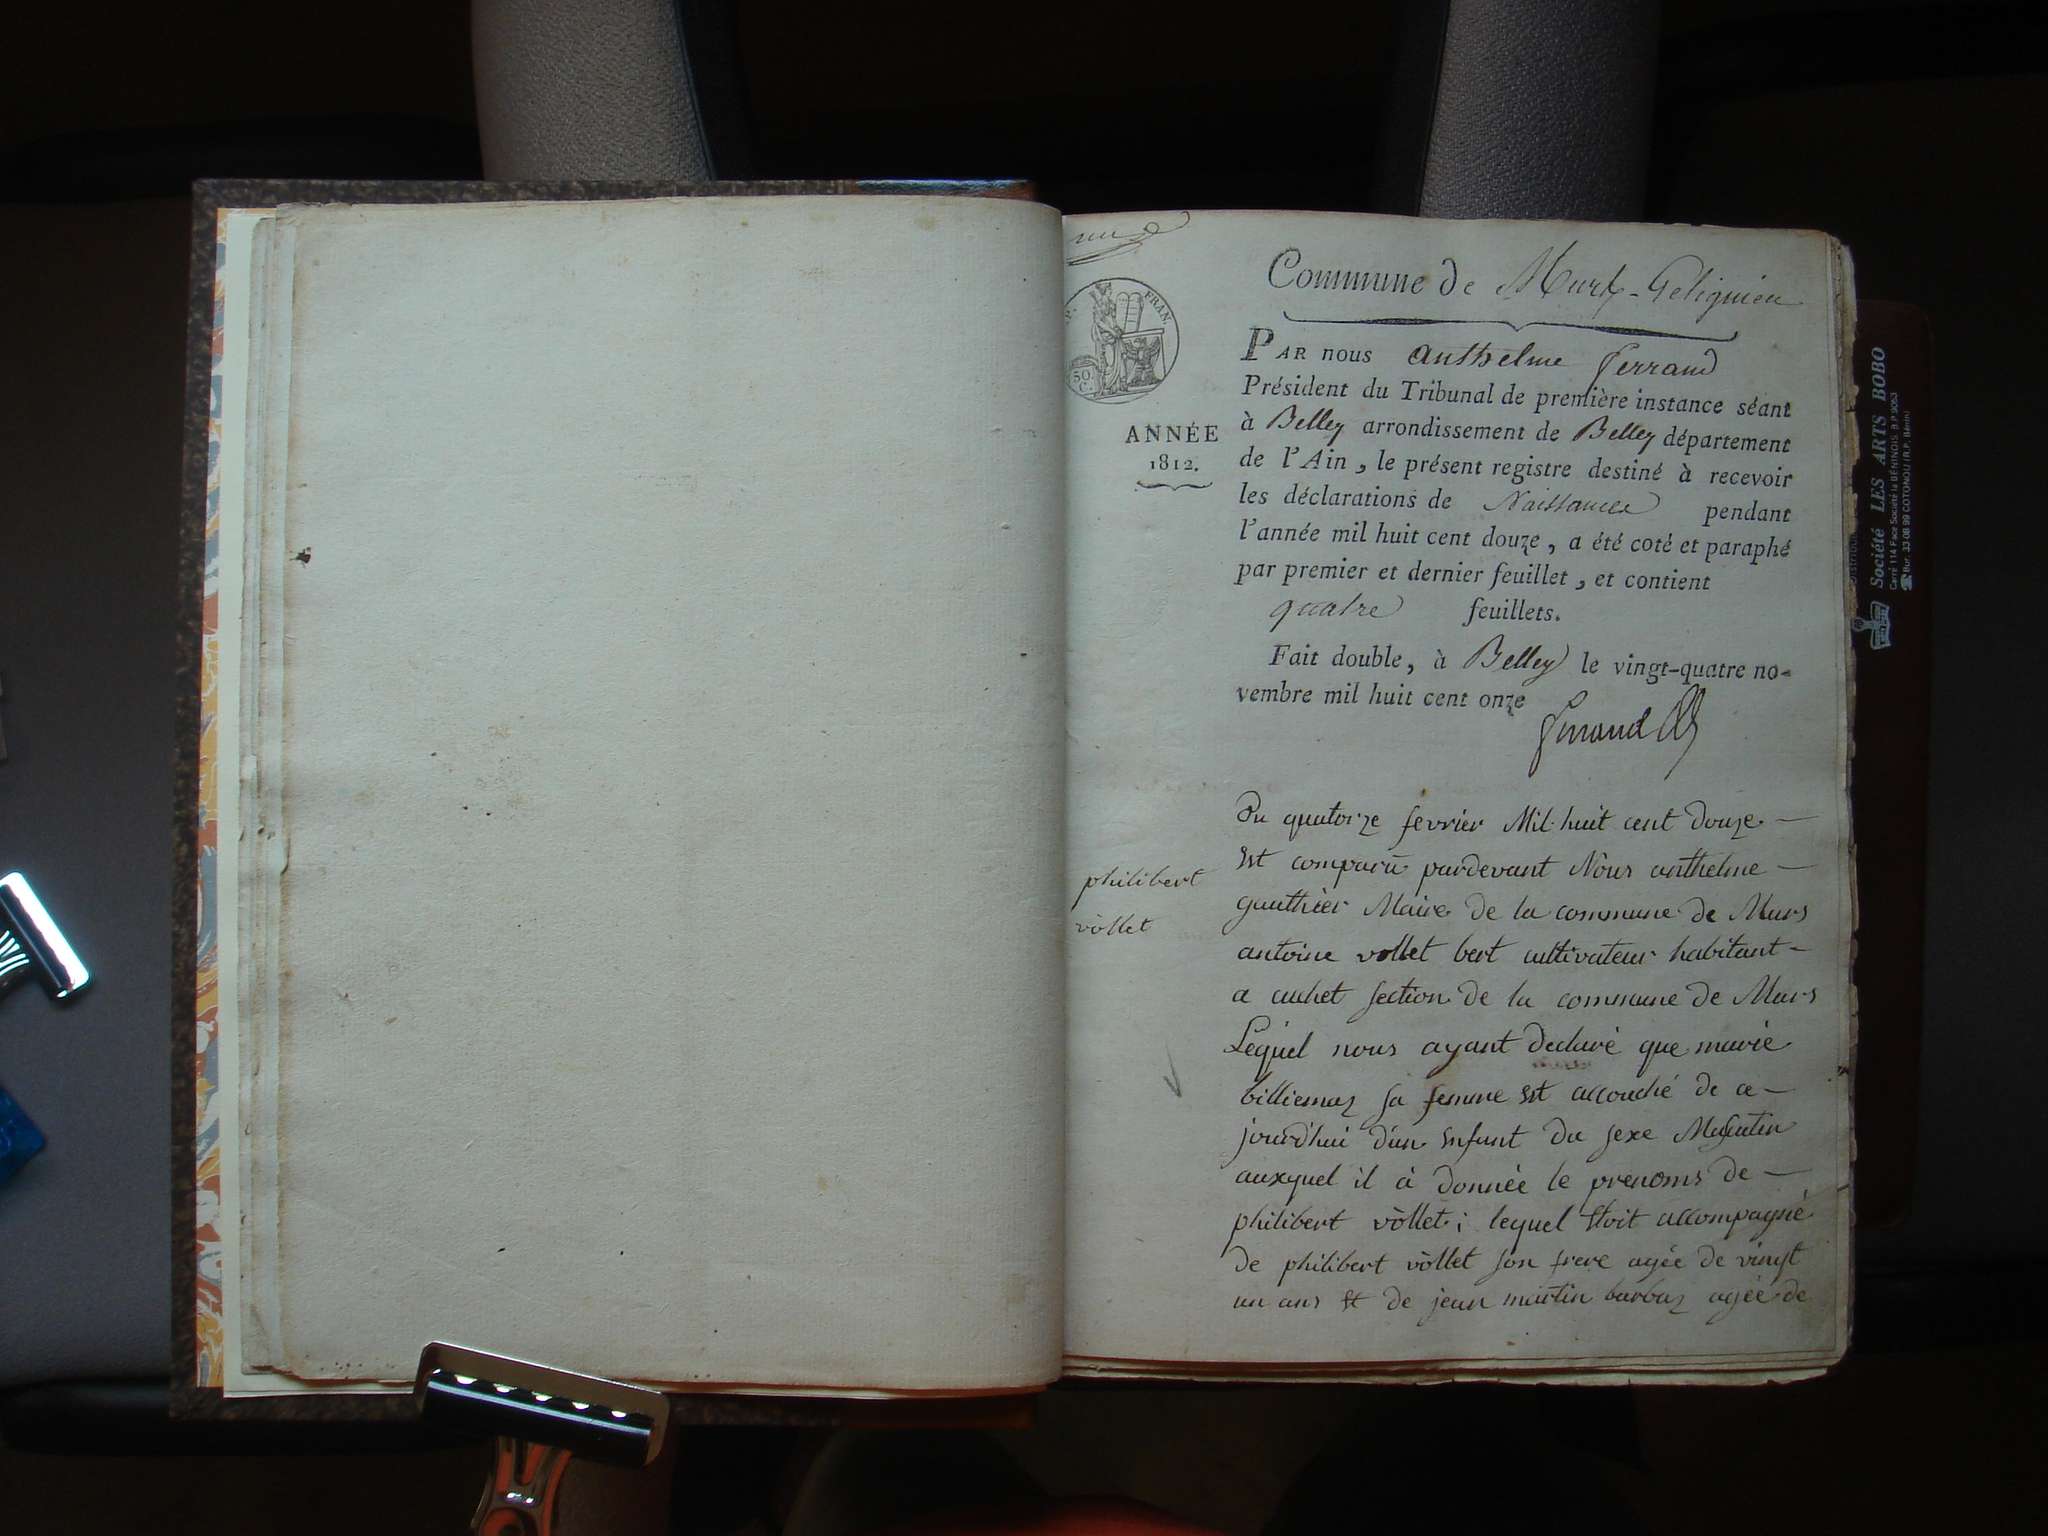 Commune de Murs-Gelignieu
P. FRAN.
50 C.
PAR nous anthelme ferrand
Président du Tribunal de première instance séant
à Belley arrondissement de Belley département
ANNÉE
1812.
de l'Ain, le présent registre destiné à recevoir
les déclarations de Naissances pendant
l'année mil huit cent douze, a été coté et paraphé
par premier et dernier feuillet, et contient
quatre feuillets.
Fait double, à Belley le vingt-quatre no-
vembre mil huit cent onze
ferrand
philibert
vòllet
Du quatorze fevrier Mil huit cent douze —
Est comparu pardevant Nous anthelme —
gauthier Maire de la commune de Murs
antoine vollet bert cultivateur habitant —
a cuchet section de la commune de Murs
Lequel nous ayant declaré que marie
billiemaz sa femme Est accouché de ce —
jourd'hui d'un Enfant du sexe Masculin
auxquel il à donnée le prenoms de —
philibert vòllet; lequel Etoit accompagné
de philibert vòllet son frere agée de vingt
un ans Et de jean martin barbaz agée de
Société LES ARTS BOBO
Carré 114 Face Société la BÉNINOIS B.P. 9053
Bur. 33 08 99 COTONOU (R.P. Bénin)